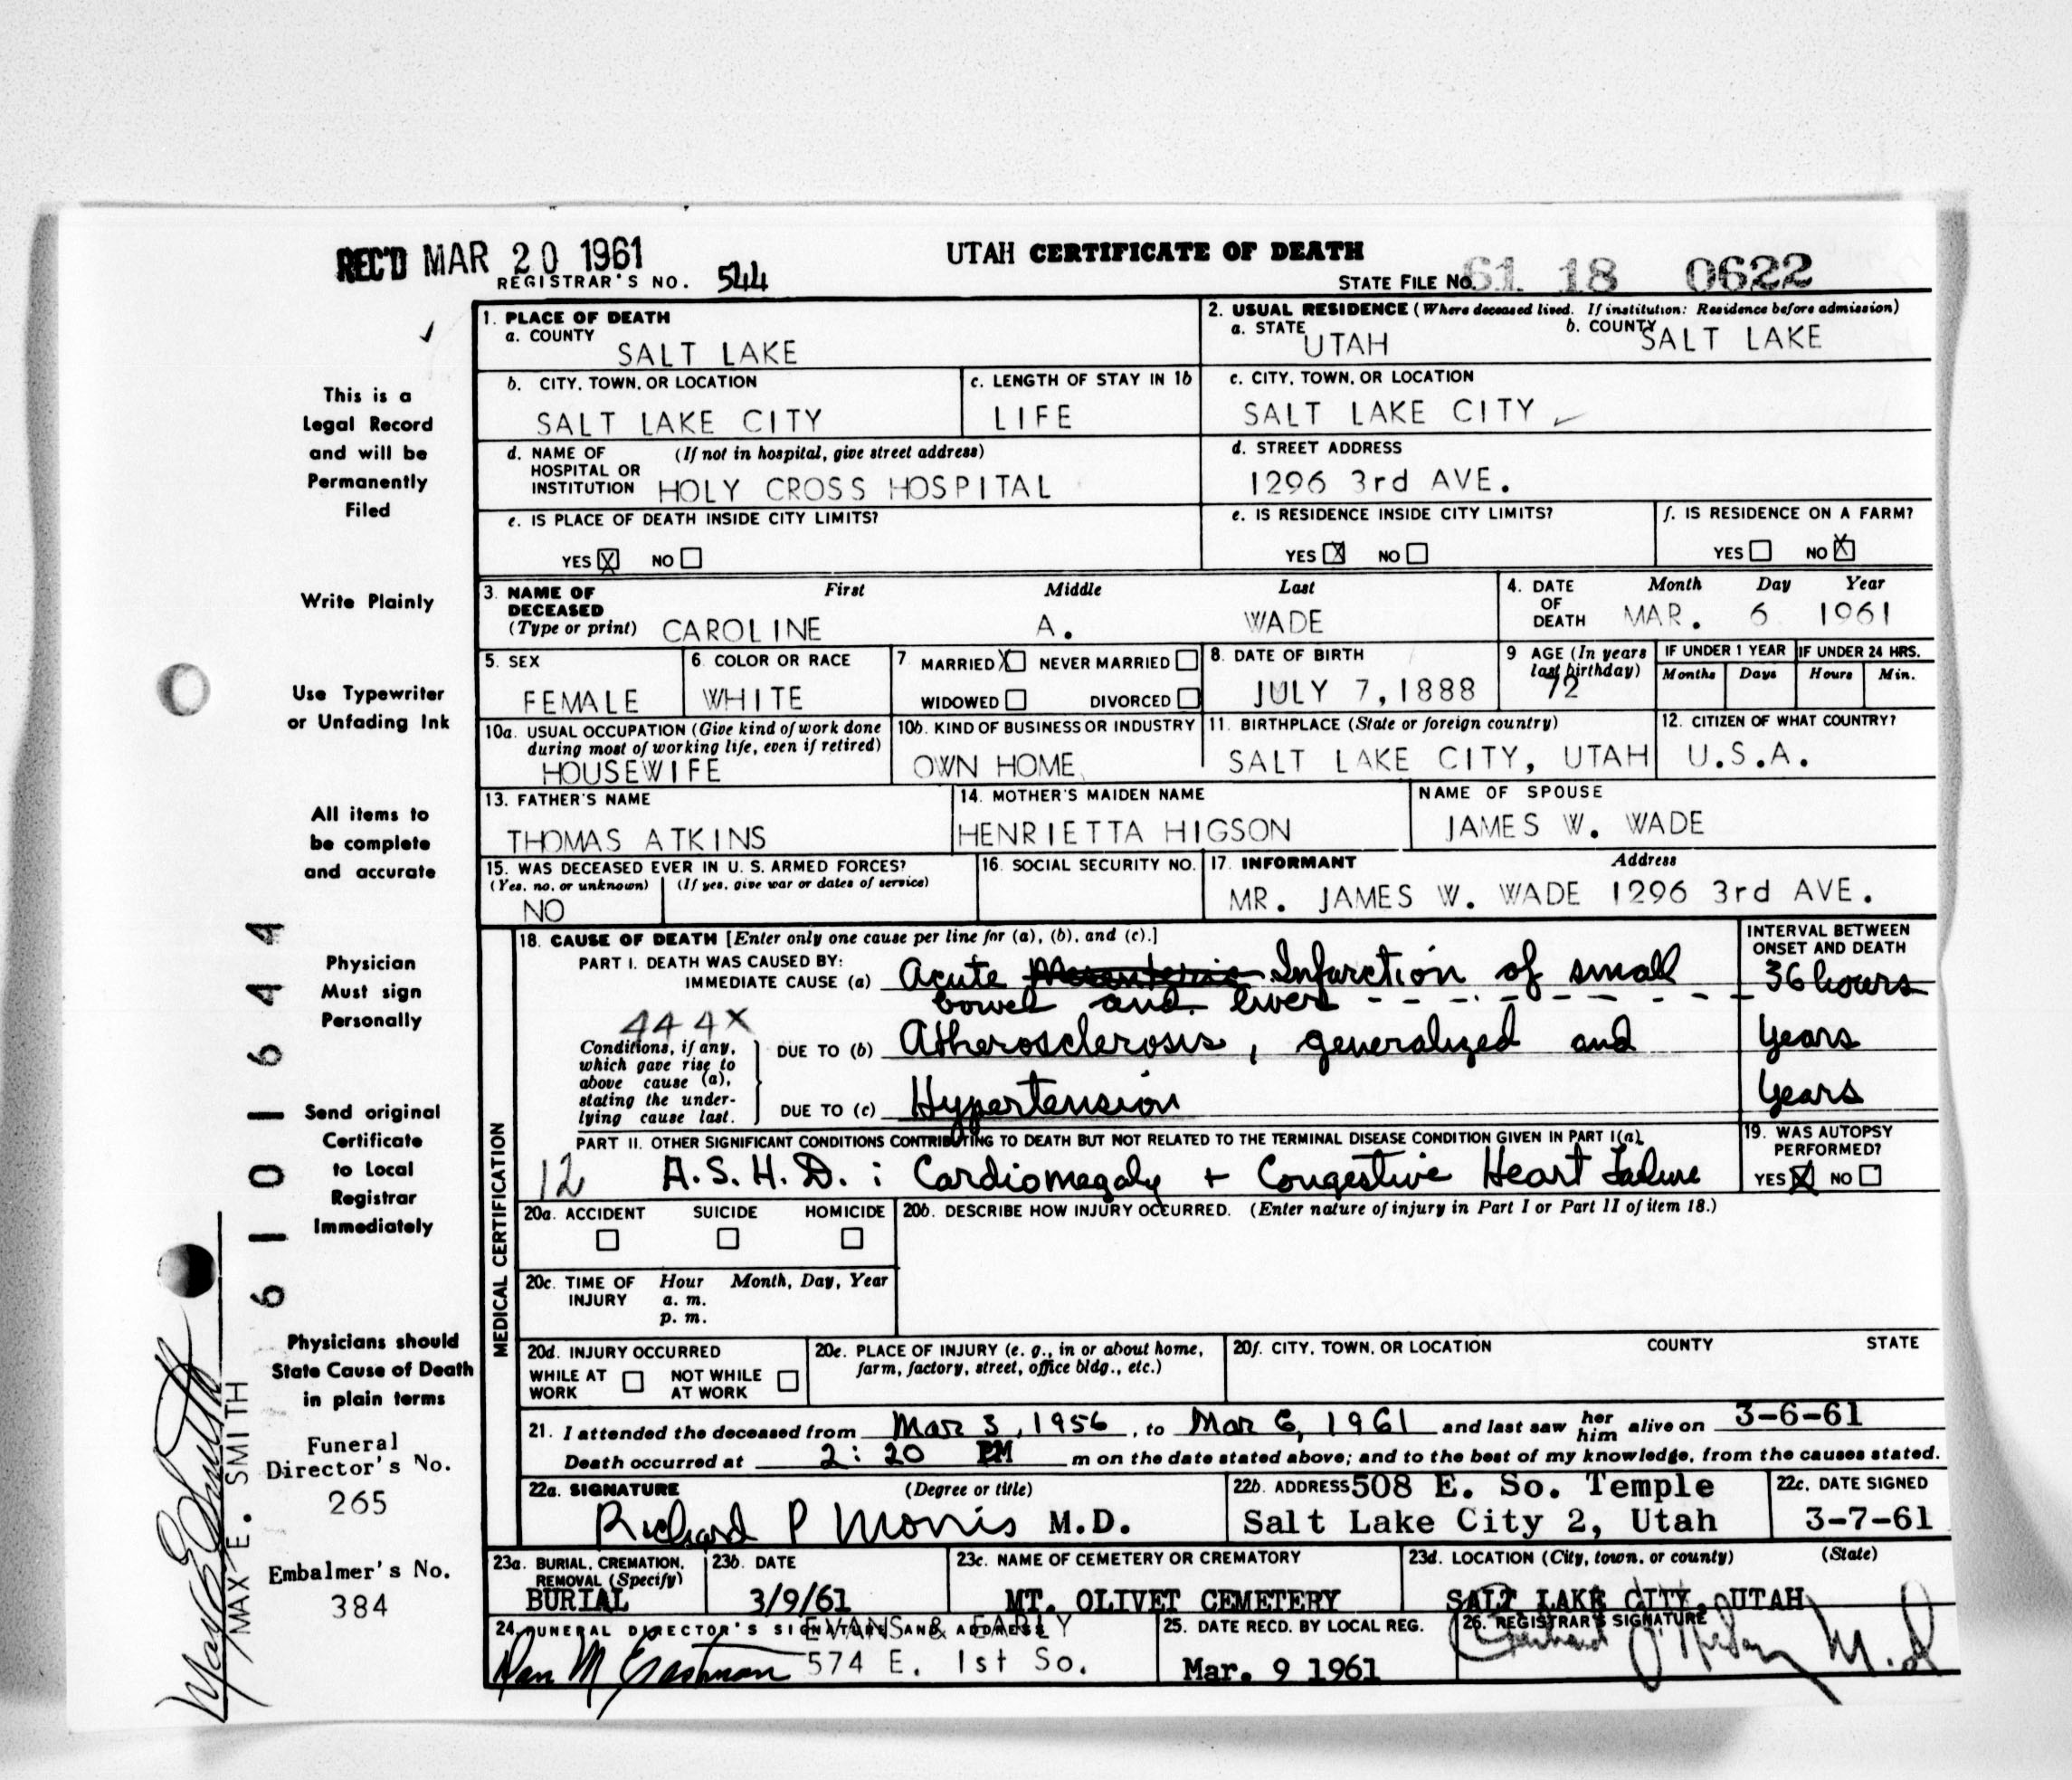 REC'D MAR 20 1961
UTAH CERTIFICATE OF DEATH
REGISTRAR'S NO. 544
STATE FILE NO. 61 18 0622
1. PLACE OF DEATH
a. COUNTY
SALT LAKE
2. USUAL RESIDENCE (Where deceased lived. If institution: Residence before admission)
a. STATE UTAH b. COUNTY SALT LAKE
b. CITY, TOWN, OR LOCATION
SALT LAKE CITY
c. LENGTH OF STAY IN 1b
LIFE
c. CITY, TOWN, OR LOCATION
SALT LAKE CITY
d. NAME OF (If not in hospital, give street address)
HOSPITAL OR
INSTITUTION HOLY CROSS HOSPITAL
d. STREET ADDRESS
1296 3rd AVE.
e. IS PLACE OF DEATH INSIDE CITY LIMITS?
YES X NO
e. IS RESIDENCE INSIDE CITY LIMITS?
YES X NO
f. IS RESIDENCE ON A FARM?
YES NO X
3. NAME OF DECEASED (Type or print)
First Middle Last
CAROLINE A. WADE
4. DATE OF DEATH
Month Day Year
MAR. 6 1961
5. SEX
FEMALE
6. COLOR OR RACE
WHITE
7. MARRIED X NEVER MARRIED
WIDOWED DIVORCED
8. DATE OF BIRTH
JULY 7, 1888
9 AGE (In years
last birthday)
72
IF UNDER 1 YEAR
Months Days
IF UNDER 24 HRS.
Hours Min.
10a. USUAL OCCUPATION (Give kind of work done
during most of working life, even if retired)
HOUSEWIFE
10b. KIND OF BUSINESS OR INDUSTRY
OWN HOME
11. BIRTHPLACE (State or foreign country)
SALT LAKE CITY, UTAH
12. CITIZEN OF WHAT COUNTRY?
U.S.A.
13. FATHER'S NAME
THOMAS ATKINS
14. MOTHER'S MAIDEN NAME
HENRIETTA HIGSON
NAME OF SPOUSE
JAMES W. WADE
15. WAS DECEASED EVER IN U. S. ARMED FORCES?
(Yes, no, or unknown) (If yes, give war or dates of service)
NO
16. SOCIAL SECURITY NO.
17. INFORMANT Address
MR. JAMES W. WADE 1296 3rd AVE.
MEDICAL CERTIFICATION
18. CAUSE OF DEATH [Enter only one cause per line for (a), (b), and (c).]
INTERVAL BETWEEN
ONSET AND DEATH
PART I. DEATH WAS CAUSED BY:
IMMEDIATE CAUSE (a) Acute Mesenteric Infarction of small 36 hours
bowel and liver
444X
Conditions, if any,
which gave rise to
above cause (a),
stating the under-
lying cause last.
DUE TO (b) Atherosclerosis, generalized and years
DUE TO (c) Hypertension years
PART II. OTHER SIGNIFICANT CONDITIONS CONTRIBUTING TO DEATH BUT NOT RELATED TO THE TERMINAL DISEASE CONDITION GIVEN IN PART I(a).
12 A.S.H.D.: Cardiomegaly + Congestive Heart Failure
19. WAS AUTOPSY
PERFORMED?
YES X NO
20a. ACCIDENT SUICIDE HOMICIDE
20b. DESCRIBE HOW INJURY OCCURRED. (Enter nature of injury in Part I or Part II of item 18.)
20c. TIME OF INJURY
Hour Month, Day, Year
a. m.
p. m.
20d. INJURY OCCURRED
WHILE AT WORK NOT WHILE AT WORK
20e. PLACE OF INJURY (e. g., in or about home,
farm, factory, street, office bldg., etc.)
20f. CITY, TOWN, OR LOCATION COUNTY STATE
21. I attended the deceased from Mar 3, 1956, to Mar 6, 1961 and last saw her him alive on 3-6-61
Death occurred at 2:20 PM m on the date stated above; and to the best of my knowledge, from the causes stated.
22a. SIGNATURE (Degree or title)
Richard P Morris M.D.
22b. ADDRESS 508 E. So. Temple
Salt Lake City 2, Utah
22c. DATE SIGNED
3-7-61
23a. BURIAL, CREMATION,
REMOVAL (Specify)
BURIAL
23b. DATE
3/9/61
23c. NAME OF CEMETERY OR CREMATORY
MT. OLIVET CEMETERY
23d. LOCATION (City, town, or county) (State)
SALT LAKE CITY, UTAH
24. FUNERAL DIRECTOR'S SIGNATURE AND ADDRESS
EVANS & EARLY
Dan M Eastman 574 E. 1st So.
25. DATE RECD. BY LOCAL REG.
Mar. 9 1961
26. REGISTRAR'S SIGNATURE
M.D
This is a
Legal Record
and will be
Permanently
Filed
Write Plainly
Use Typewriter
or Unfading Ink
All items to
be complete
and accurate
Physician
Must sign
Personally
Send original
Certificate
to Local
Registrar
Immediately
Physicians should
State Cause of Death
in plain terms
Funeral
Director's No.
265
Embalmer's No.
384
6101644
Max E Smith
MAX E. SMITH